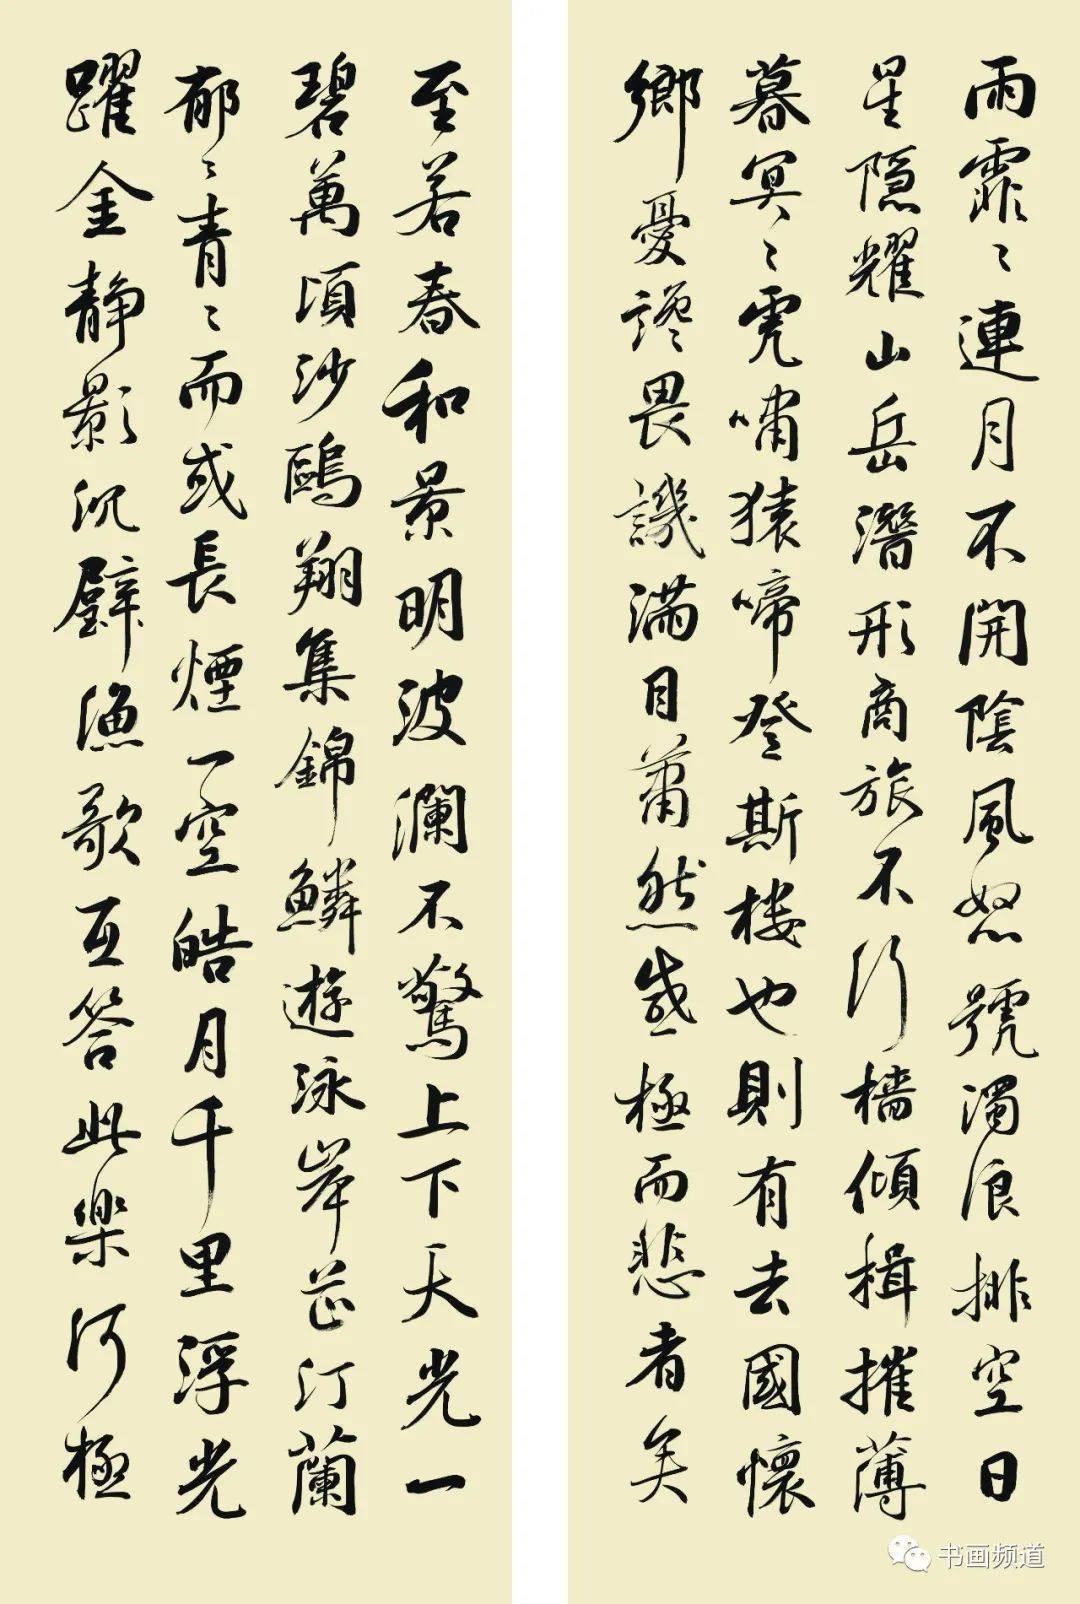 雨霏〻連月不開陰風怒號濁浪排空日
星隐耀山岳潛形商旅不行檣傾楫摧薄
暮冥〻虎嘯猿啼登斯楼也則有去國懷
鄉憂讒畏譏满目蕭然感極而悲者矣
至若春和景明波瀾不驚上下天光一
碧萬頃沙鷗翔集錦鱗遊泳岸芷汀蘭
郁〻青〻而或長煙一空皓月千里浮光
躍金静影沉璧漁歌互答此樂何極
书画频道